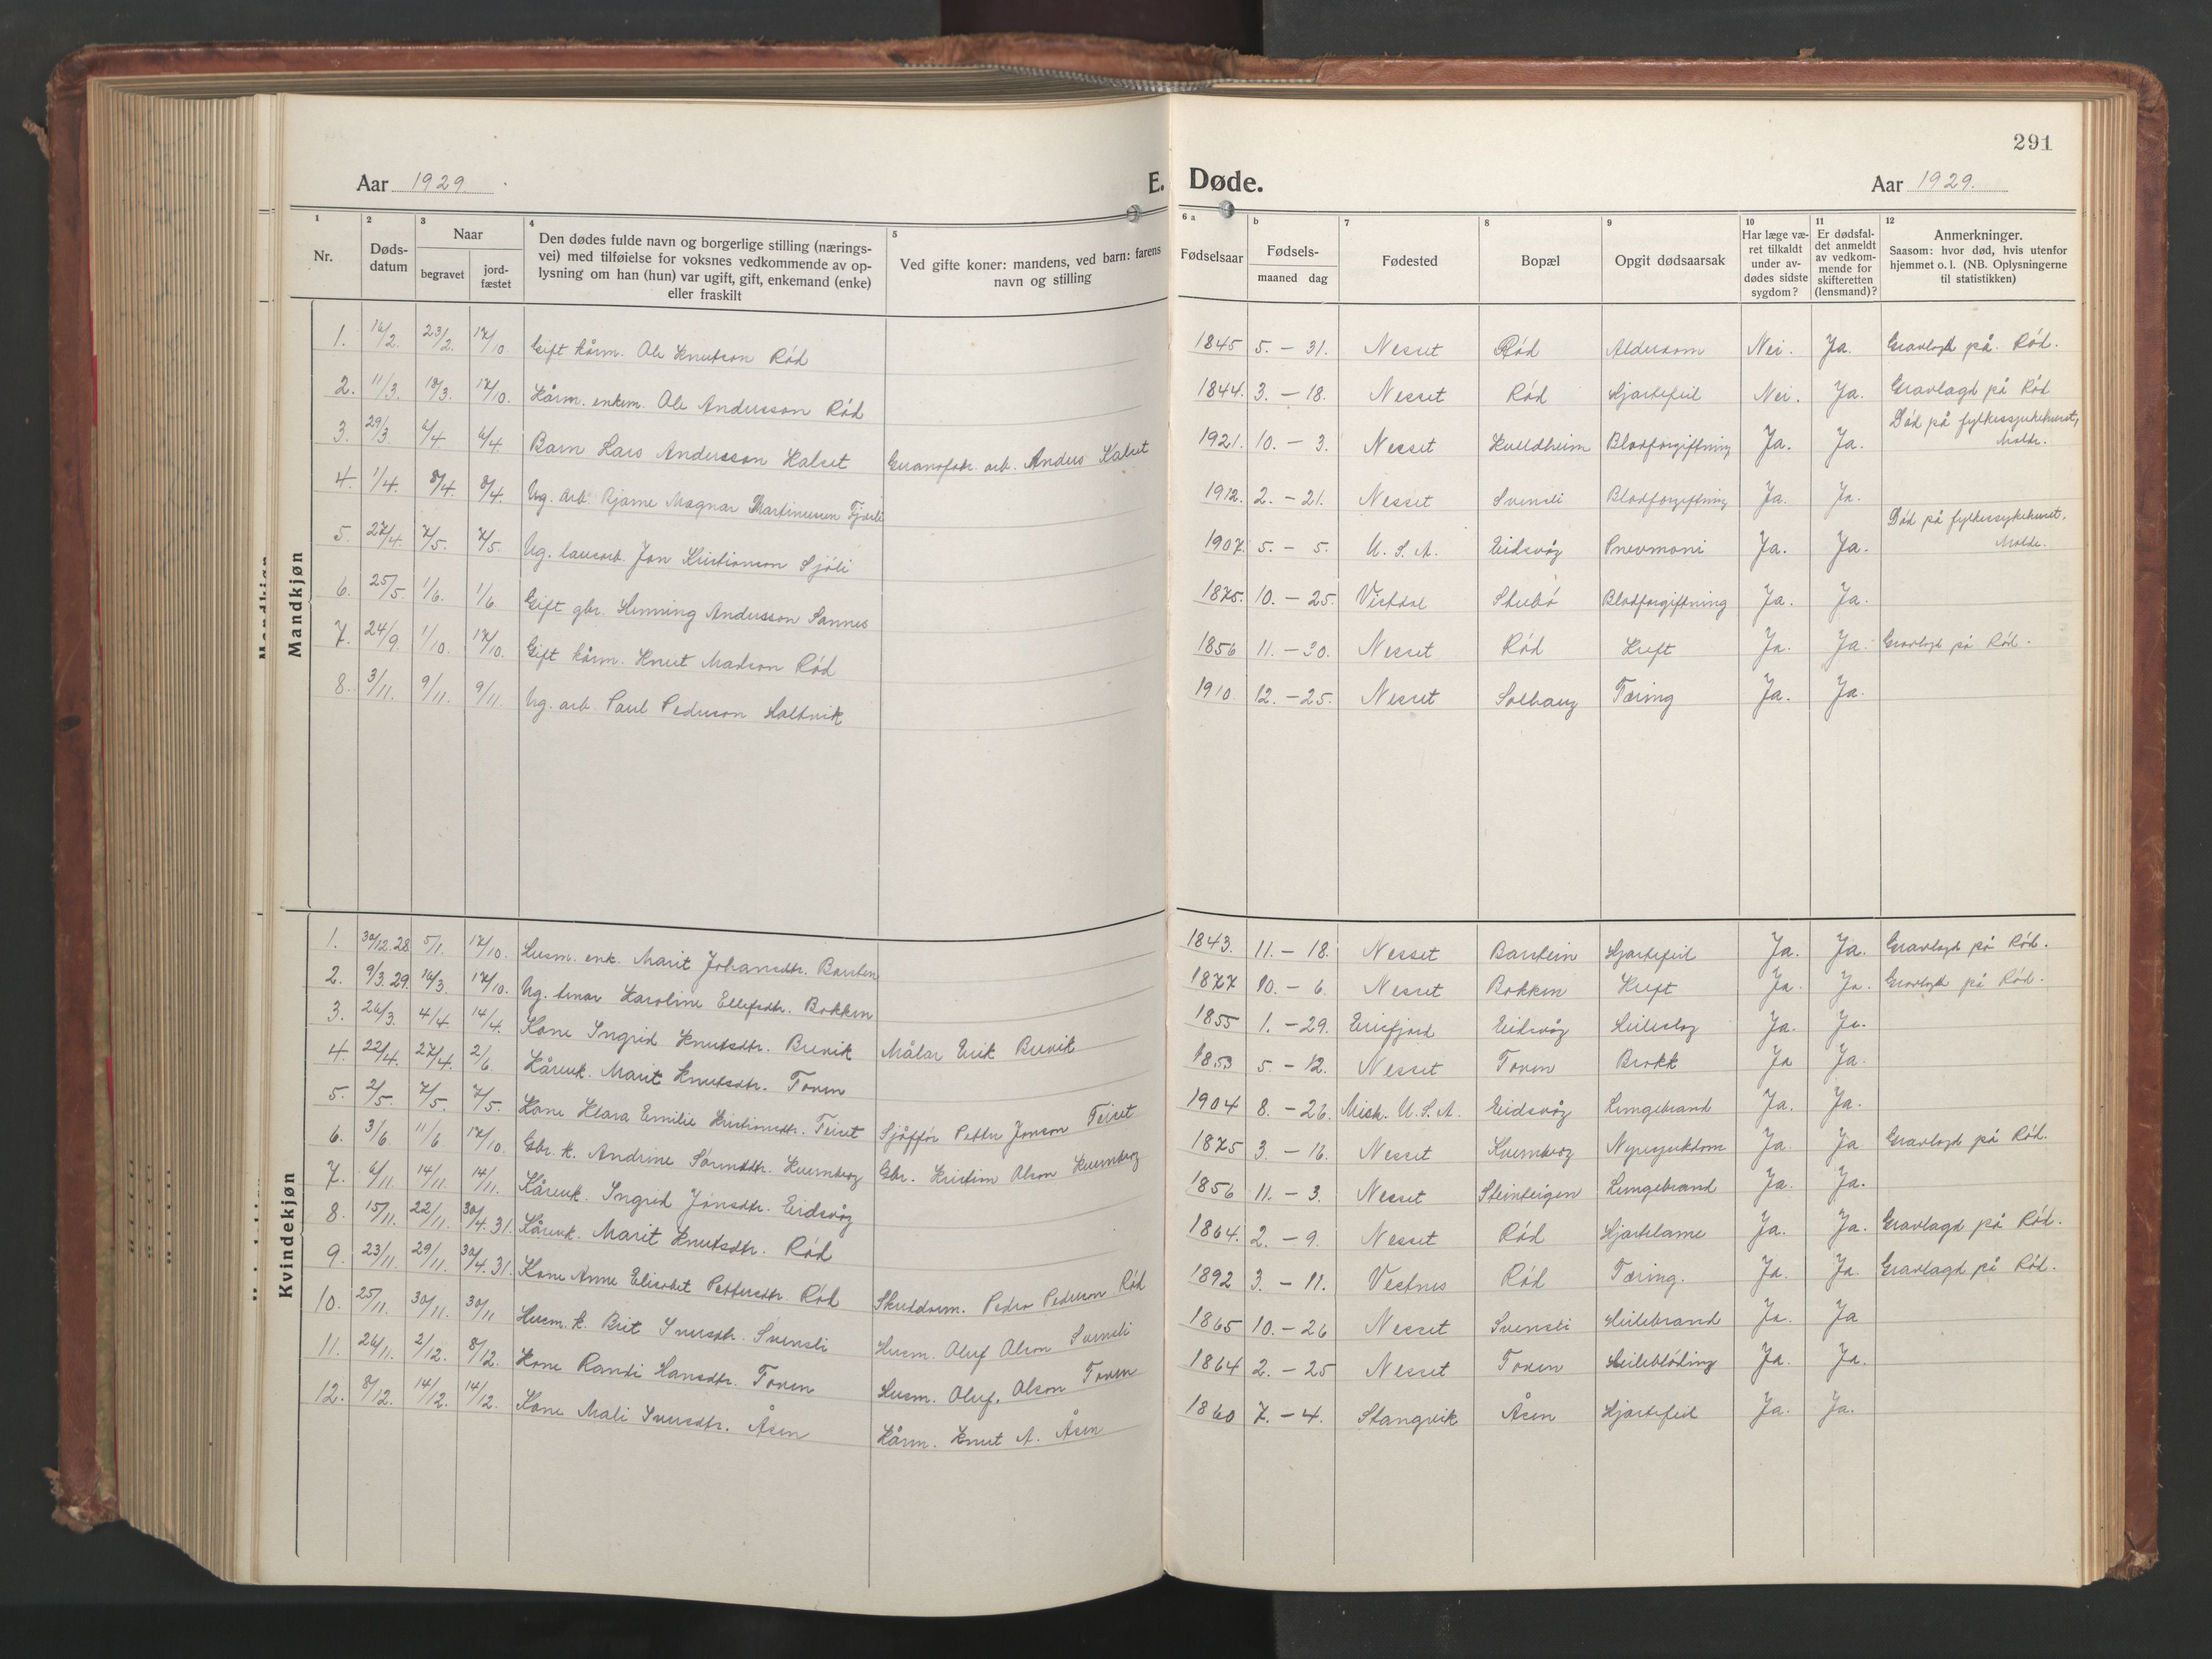 291
Aar 1929.
E. Døde.
Aar 1929.
1 2 3 4 5 6 a b 7 8 9 10 11 12
Nr.
Døds-
datum
Naar
begravet
jord-
fæstet
Den dødes fulde navn og borgerlige stilling (nærings-
vei) med tilføielse for voksnes vedkommende av op-
lysning om han (hun) var ugift, gift, enkemand (enke)
eller fraskilt
Ved gifte koner: mandens, ved barn: farens
navn og stilling
Fødselsaar
Fødsels-
maaned dag
Fødested
Bopæl
Opgit dødsaarsak
Har læge væ-
ret tilkaldt
under av-
dødes sidste
sygdom?
Er dødsfal-
det anmeldt
av vedkom-
mende for
skifteretten
(lensmand)?
Anmerkninger.
Saasom: hvor død, hvis utenfor
hjemmet o. l. (NB. Oplysningerne
til statistikken)
Mandkjøn
1. 16/2. 23/2. 17/10 Gift kårm. Ole Knutson Rød 1845 5. – 31. Nesset Rød Aldersom Nei. Ja. Gravlagd på Rød.
2. 11/3. 18/3. 17/10. Kårm. enkem. Ole Andersson Rød 1844. 3. – 18. Nesset Rød Hjartefeil Nei. Ja. Gravlagd på Rød
3. 29/3 6/4. 6/4. Barn Lars Andersson Halset Guanofabr. arb. Anders Halset 1921. 10. – 3. Nesset Kveldheim Blodforgiftning Ja. Ja. Død på fylkessjukehuset, Molde.
4. 1/4. 8/4. 8/4. Ug. arb. Bjarne Magnar Martinussen Fjærli 1912. 2. – 21. Nesset Svensli Blodforgiftning Ja. Ja.
5. 27/4. 7/5. 7/5. Ug. lausarb. Jon Kristianson Sjøli 1907. 5. – 5. U. S. A. Eidsvåg Pnevmoni Ja. Ja. Død på fylkessykehuset, Molde.
6. 25/5. 1/6. 1/6 Gift gbr. Henning Andersson Sannes 1875. 10. – 25. Vistdal Stubø Blodforgiftning Ja. Ja.
7. 24/9. 1/10. 17/10. Gift kårm. Knut Madson Rød 1856 11. – 30. Nesset Rød Kreft Ja. Ja. Gravlagt på Rød.
8. 3/11. 9/11. 9/11. Ug. arb. Paul Pederson Saltvik 1910. 12. – 25. Nesset Solhaug Tæring Ja. Ja.
Kvindekjøn
1. 30/12.28 5/1. 17/10. Husm. enk. Marit Johansdtr. Barstein 1843. 11. – 18. Nesset Barstein Hjartefeil Ja. Ja. Gravlagd på Rød.
2. 9/3.29. 16/3. 17/10. Ug. tenar Karoline Ellefsdtr. Bokken 1877 10. – 6. Nesset Bokken Kreft Ja. Ja. Gravlagt på Rød.
3. 26/3. 4/4. 14/4. Kone Ingrid Knutsdtr. Brevik Målar Erik Brevik 1855 1. – 29. Eresfjord Eidsvåg Heileslag Ja. Ja.
4. 22/4. 27/4. 2/6 Kårenk. Marit Knutsdtr. Toven 1853 5. – 12. Nesset Toven Brokk Ja Ja.
5. 2/5. 7/5. 7/5. Kone Klara Emilie Kristiansdtr. Teiset Sjåffør Petter Jonson Teiset 1904 8. – 26. Mich. U.S.A. Eidsvåg Lungebrand Ja. Ja.
6. 3/6. 11/6 17/10. Gbr. k. Andrine Sørensdtr. Kvernberg Gbr. Kristian Olson Kvernberg 1875 3. – 16. Nesset Kvernberg Nyresjukdom Ja. Ja Gravlagd på Rød.
7. 6/11. 14/11. 14/11. Kårenk. Ingrid Jonsdtr. Eidsvåg 1856 11. – 3. Nesset Steinteigen Lungebrand Ja. Ja.
8. 15/11. 22/11. 30/4.31. Kårenk. Marit Knutsdtr. Rød 1864. 2. – 9. Nesset Rød Hjartelame Ja. Ja. Gravlagd på Rød.
9. 23/11. 29/11. 30/4.31. Kone Anne Elisabet Pettersdtr. Rød Skreddarm. Peder Pederson Rød 1892 3. – 11. Vestnes Rød Tæring. Ja. Ja. Gravlagd på Rød.
10. 25/11. 30/11. 30/11 Husm. k. Brit Iversdtr. Svensli Husm. Oluf Olson Svensli 1865 10. – 26 Nesset Svensli Heilebrand Ja. Ja
11. 26/11. 2/12. 8/12. Kone Randi Hansdtr. Toven Husm. Oluf. Olson Toven 1864 2. – 25 Nesset Toven Heilebløding Ja. Ja.
12. 8/12. 14/12. 14/12. Kone Mali Iversdtr. Åsen Kårm. Knut A. Åsen 1860 7. – 4. Stangvik Åsen Hjartefeil Ja. Ja.